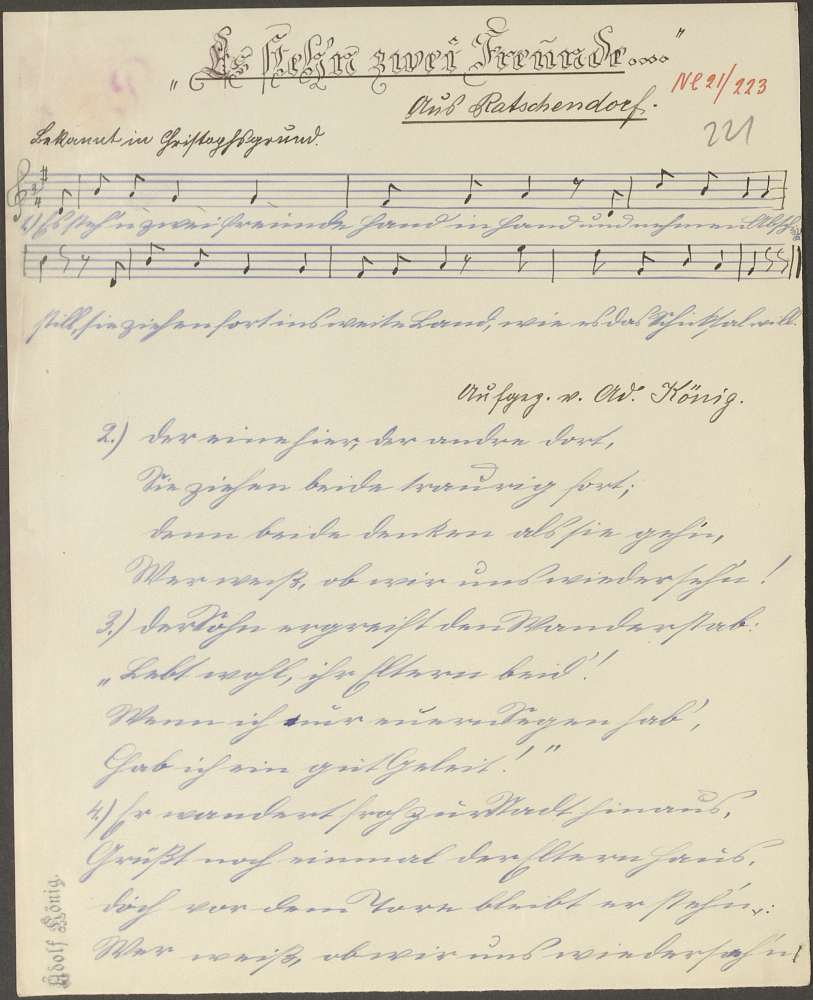 „Es steh'n zwei Freunde...."
Aus Ratschendorf.
Nl 21/223
221
Bekannt in Christophsgrund.
1.) Es steh'n zwei Freunde Hand in Hand und nehmen Abschied
still, sie ziehen fort ins weite Land, wie es das Schicksal will.
Aufgez. v. Ad. König.
2.) Der eine hier, der andre dort,
Sie ziehen beide traurig fort;
denn beide denken als sie geh'n,
Wer weiß, ob wir uns wiederseh'n!
3.) Der Sohn ergreift den Wanderstab:
„Lebt wohl, ihr Eltern beid'!
Wenn ich nur euern Segen hab',
Hab ich ein gut Geleit!"
4.) Er wandert froh zur Stadt hinaus,
Grüßt noch einmal der Eltern Haus,
doch vor dem Tore bleibt er steh'n:
Wer weiß, ob wir uns wiederseh'n!
Adolf König.